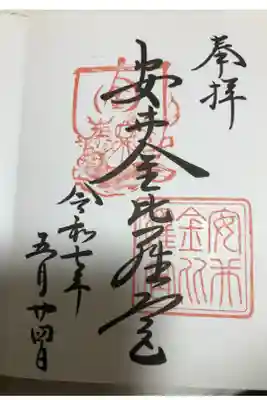 奉拝
安井金比羅宮
令和七年
五月廿四日
安井
金比
羅宮